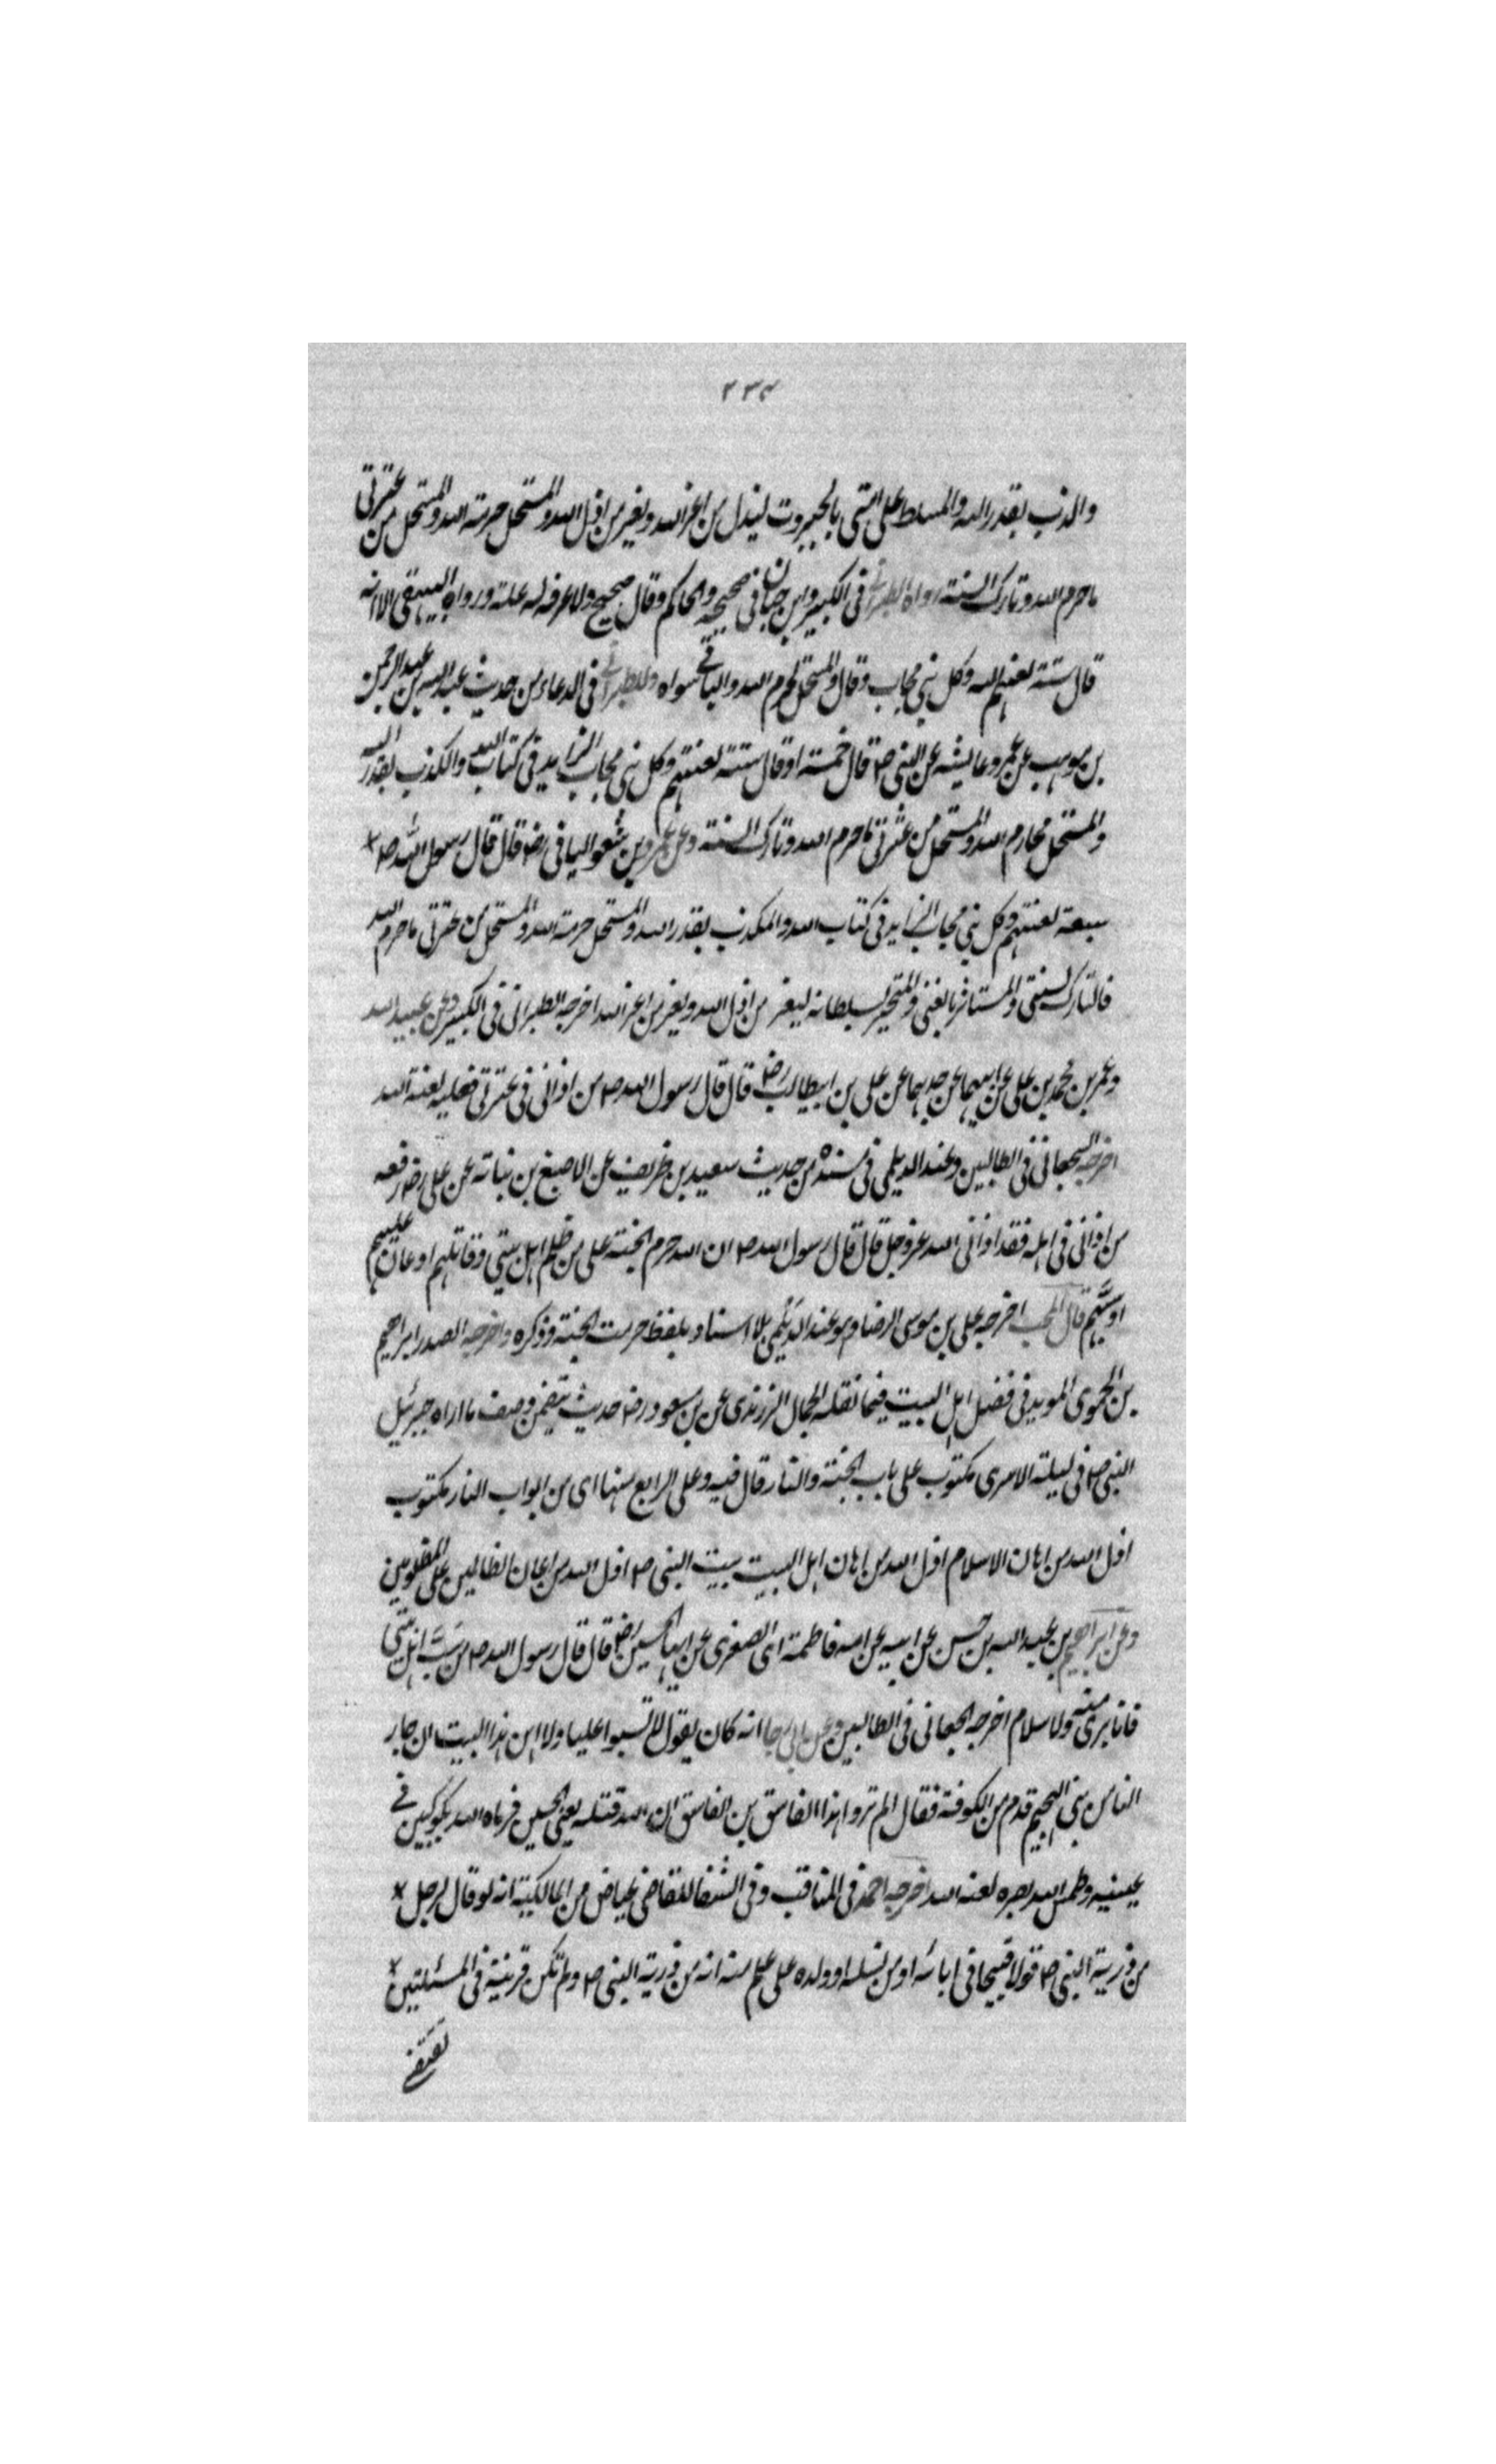 ٢٣٤
والمكذب بقدر الله والمسلط على امتى بالجبروت ليذل من اعز الله ويعز من اذل الله والمستحل حرمة الله والمستحل من عترتى
ما حرم الله وتارك السنة رواه الطبرانى فى الكبير وابن حبان فى صحيحه والحاكم وقال صحيح ولا اعرف له علة ورواه البيهقى الا انه
قال ستة لعنهم الله وكل نبى مجاب وقال والمستحل لحرم الله والباقى سواه وللطبرانى فى الدعاء من حديث عبد الله بن عبد الرحمن
بن موهب عن عمرو عايشه عن النبى ص قال خمسة او قال ستة لعنتهم وكل نبى مجاب الزايد فى كتاب الله والمكذب بقدر الله
والمستحل محارم الله والمستحل من عترتى ما حرم الله وتارك السنة وعن عمرو بن شعوا اليافى رض قال قال رسول الله ص
سبعة لعنتهم وكل نبى مجاب الزايد فى كتاب الله والمكذب بقدر الله والمستحل حرمة الله والمستحل من عترتى ما حرم الله
فالتارك لسنتى والمستاثر بالغنى والمتجبر بسلطانه ليعز من اذل الله ويعز من اعز الله اخرجه الطبرانى فى الكبير وعن عبيد الله
وعمر بن محمد بن على عن ابيهما عن جدهما عن على بن ابيطالب رض قال قال رسول الله ص من اذانى فى عترتى فعليه لعنة الله
اخرجه الجعانى فى الطالبين وعند الديلمى فى مسنده من حديث سعيد بن ظريف عن الاصبغ بن نباته عن على رض رفعه
من اذانى فى اهله فقد اذانى الله عز وجل قال قال رسول الله ص ان الله حرم الجنة على من ظلم اهل بيتى وقاتلهم او عان عليهم
او سبهم قال المحب اخرجه على بن موسى الرضا وهو عند الديلمى بلا اسناد بلفظ حرمت الجنة وذكره واخرجه الصدر ابراهيم
بن الحموى المويد فى فضل اهل البيت فيما نقله الجمال الزرندى عن بن مسعود رض حديث يتضمن وصف ما اراه جبرئيل
النبى ص فى ليلة الاسرى مكتوب على باب الجنة والنار قال فيه وعلى الرابع منها اى من ابواب النار مكتوب
اذل الله من اهان الاسلام اذل الله من اهان اهل البيت بيت النبى ص اذل الله من اعان الظالمين على المظلومين
وعن ابراهيم بن عبد الله بن حسن عن ابيه عن امه فاطمة اى الصغرى عن ابيها الحسين رض قال قال رسول الله ص من سب اهل بيتى
فانا برى منه ولاسلام اخرجه الجعانى فى الطالبين وعن ابى رجا انه كان يقول لا تسبوا عليا ولا اهل هذا البيت ان جار
الناس بنى الهجيم قدم من الكوفة فقال الم تروا هذا الفاسق بن الفاسق ان الله قتله يعنى الحسين فرماه الله بكوكبين فى
عينيه وطمس الله بصره لعنه الله اخرجه احمد فى المناقب وفى الشفا للقاضى عياض من المالكية انه لو قال لرجل
من ذرية النبى ص قولا قبيحا فى ابائه او من نسله او ولده على علم منه انه من ذرية النبى ص ولم تكن قرينة فى المسئلتين
تقتضى